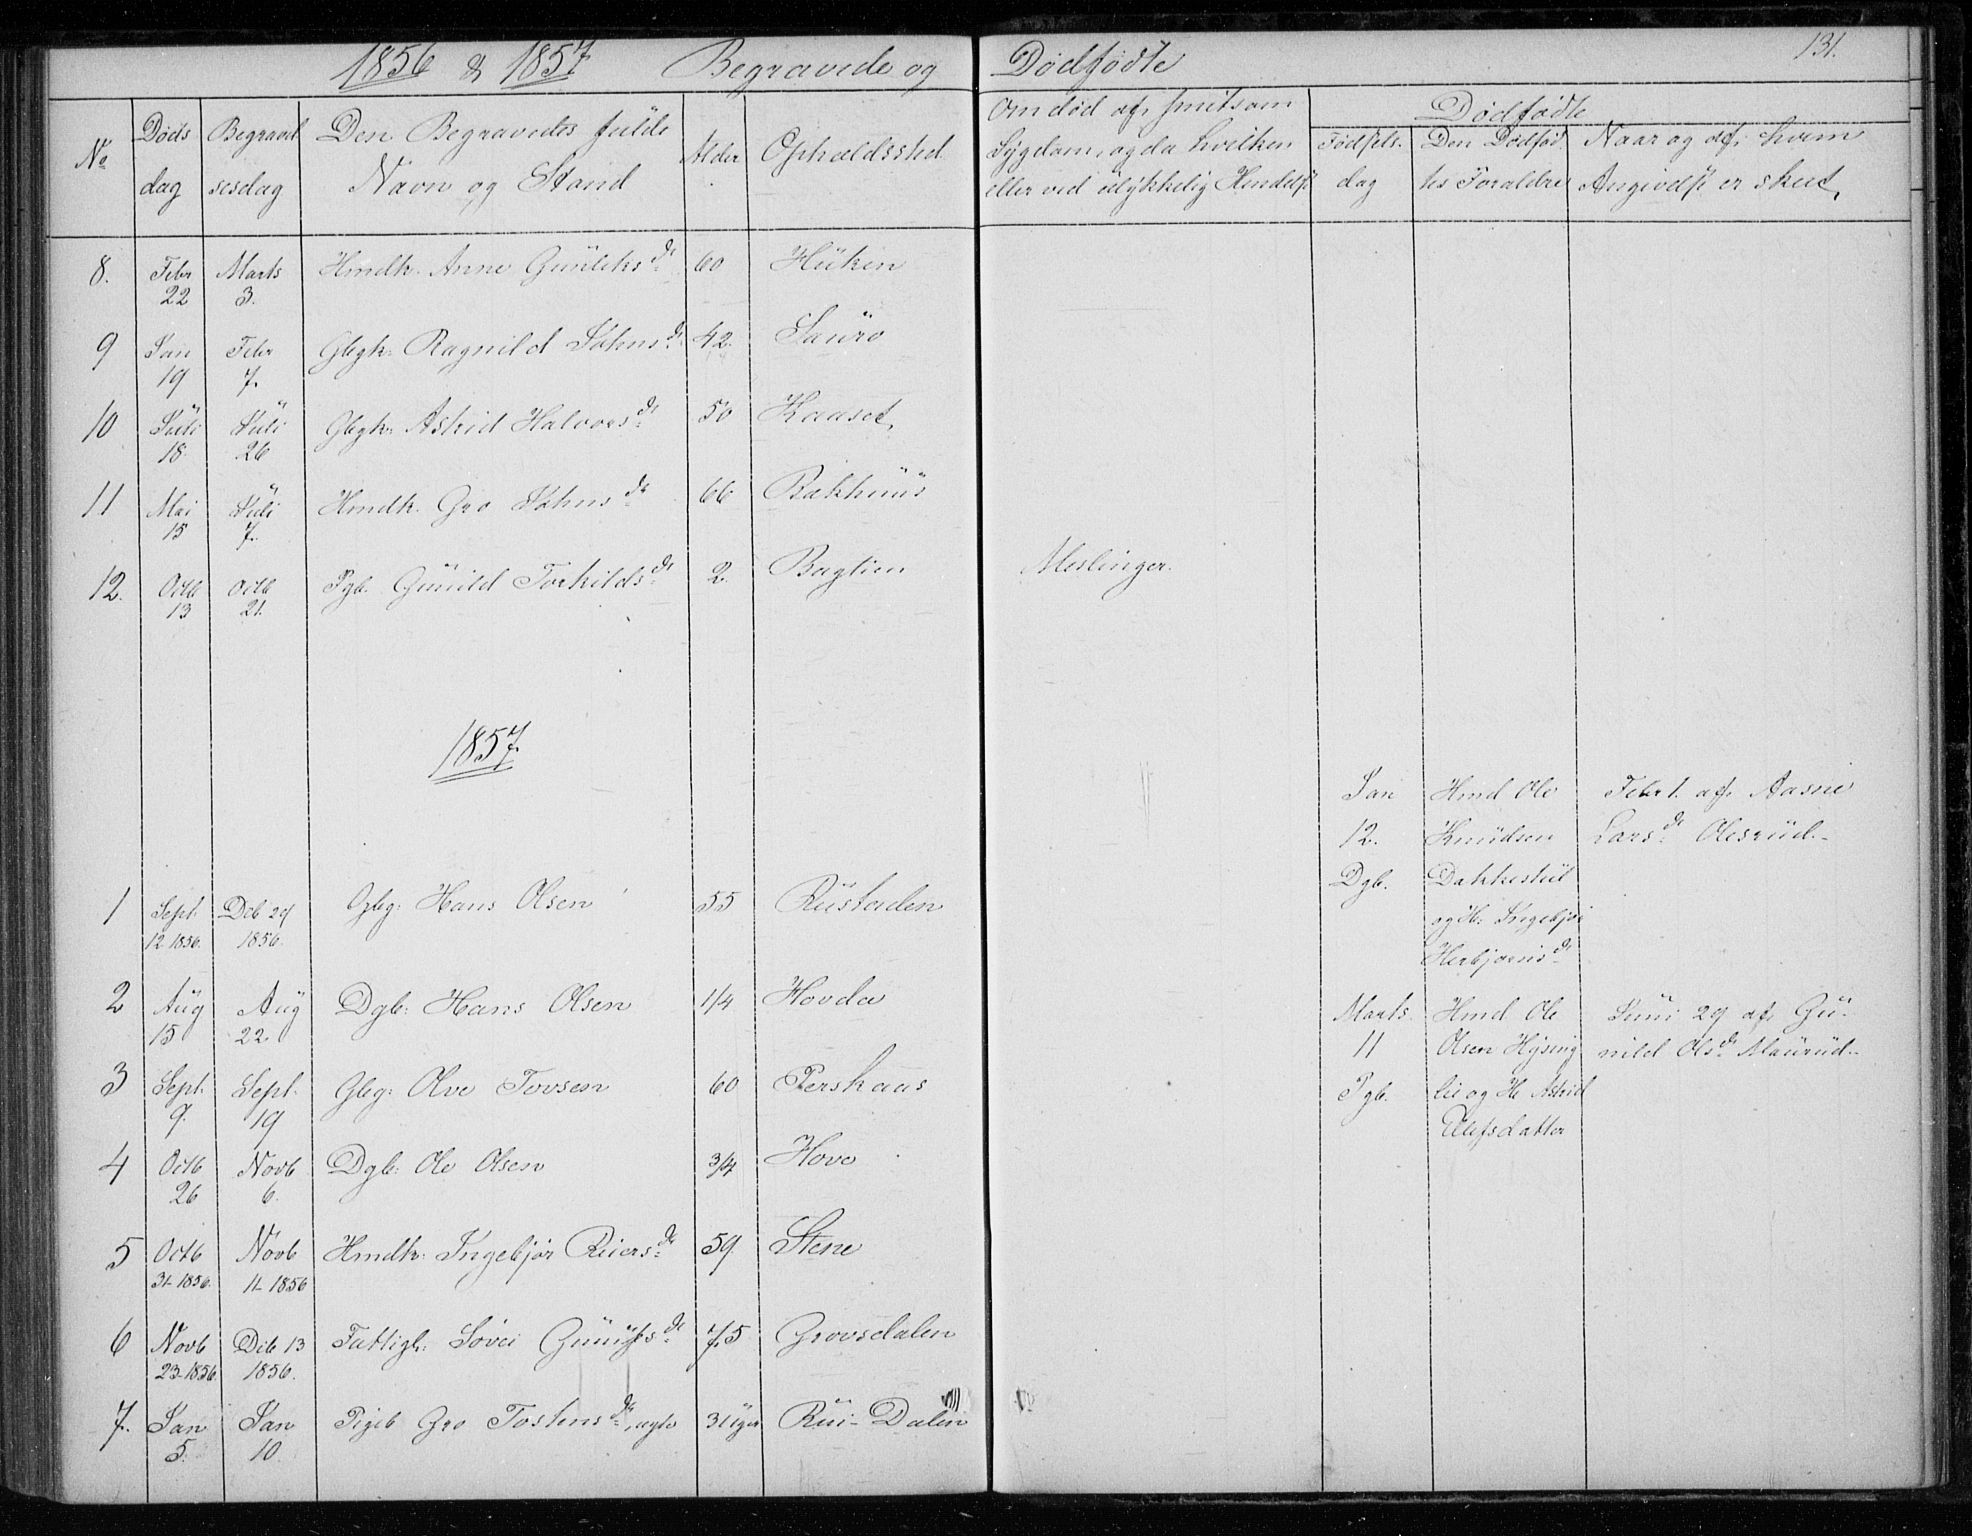 1856 & 1857 Begravede og Dødfødte 131.
No Dødsdag Begravelsesdag Den Begravedes fulde Navn og Stand Alder Opholdssted Om død af smitsom Sygdom, og da hvilken eller ved ulykkelig Hendelse
Dødfødte
Fødselsdag Den Dødfødtes Foraldre Naar og af hvem Angivelse er skeet,
8. Febr 22 Marts 3. Hmdk. Anne Gunleksdr 60 Huken
9 Jan 19 Febr 7. Gbgk. Ragnild Johnsdr 42. Sauro
10 Juli 18 Juli 26 Gbgk. Astrid Halvorsdr 50 Kaaset,
11 Mai 15 Juli 7. Hmdk. Gro Johnsdr 66 Bakhuus
12. Octb 13 Octb 21. Pgb. Gunild Torkildsdr 2. Baglien Meslinger.
1857
1 Sept. 12 1856. Dcb 29 1856. Gbg: Hans Olsen 55 Rustaden
2 Aug 15 Aug 22. Dgb: Hans Olsen 1/4 Hovda
3 Sept. 9. Sept. 19 Gbg: Olve Tovsen 60 Pershaus
4 Octb 26 Novb 6. Dgb: Ole Olsen 3/4 Hove
5 Octb 31-1856. Novb 11-1856 Hmdk: Ingebjør Reiersdr 59 Stene
6 Novb 23-1856. Dcb 13 1856. Fattigl: Søvei 75 Grovsdalen
7. Jan 5. Jan 10. Pigeb Gro Tostensdr, ægte 3 Uger Rui-Dalen
Jan Hmd Ole Febr 1. af Aasne
12. Knudsen Larsdr Olesrud.
Dgb. Dokkeskut
og H: Ingebjør
Herbjørnsdr
Marts Hmd Ole Juni 29 af Gu-
11 Olsen Hysing nild Olsdr Maurud.
Pgb. lie og H: Astrid
Olefsdatter